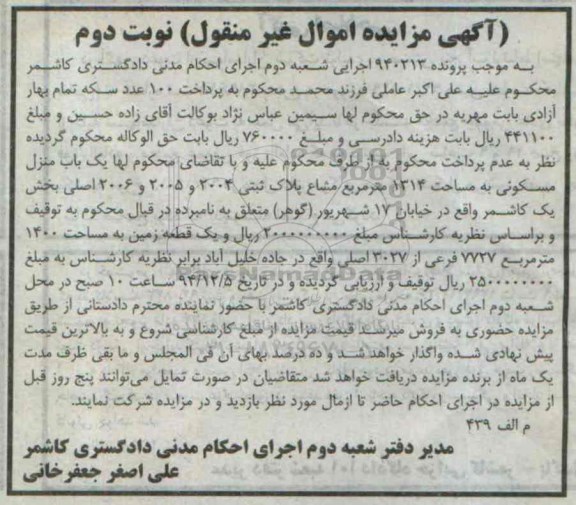 (آگهی مزایده اموال غیر منقول) نوبت دوم
به موجب پرونده ۹۴۰۲۱۳ اجرایی شعبه دوم اجرای احکام مدنی دادگستری کاشمر
محکوم علیه علی اکبر عاملی فرزند محمد محکوم به پرداخت ۱۰۰ عدد سکه تمام بهار
آزادی بابت مهریه در حق محکوم لها سیمین عباس نژاد بوکالت آقای زاده حسین و مبلغ
۴۴۱۱۰۰ ریال بابت هزینه دادرسی و مبلغ ۷۶۰۰۰۰ ریال بابت حق الوکاله محکوم گردیده
نظر به عدم پرداخت محکوم به از طرف محکوم علیه و با تقاضای محکوم لها یک باب منزل
مسکونی به مساحت ۱۳۱۴ مترمربع مشاع پلاک ثبتی ۲۰۰۴ و ۲۰۰۵ و ۲۰۰۶ اصلی بخش
یک کاشمر واقع در خیابان ۱۷ شهریور (گوهر) متعلق به نامبرده در قبال محکوم به توقیف
و براساس نظریه کارشناس مبلغ ۲۰۰۰۰۰۰۰۰۰۰ ریال و یک قطعه زمین به مساحت ۱۴۰۰
مترمربع ۷۷۲۷ فرعی از ۳۰۲۷ اصلی واقع در جاده خلیل آباد برابر نظریه کارشناس به مبلغ
۲۵۰۰۰۰۰۰۰۰ ریال توقیف و ارزیابی گردیده و در تاریخ ۹۴/۱۲/۵ ساعت ۱۰ صبح در محل
شعبه دوم اجرای احکام مدنی دادگستری کاشمر با حضور نماینده محترم دادستانی از طریق
مزایده حضوری به فروش میرسد قیمت مزایده از مبلغ کارشناسی شروع و به بالاترین قیمت
پیش نهادی شده واگذار خواهد شد و ده درصد بهای آن فی المجلس و ما بقی ظرف مدت
یک ماه از برنده مزایده دریافت خواهد شد متقاضیان در صورت تمایل می‌توانند پنج روز قبل
از مزایده در اجرای احکام حاضر تا ازمال مورد نظر بازدید و در مزایده شرکت نمایند.
م الف ۴۳۹
مدیر دفتر شعبه دوم اجرای احکام مدنی دادگستری کاشمر
علی اصغر جعفرخانی